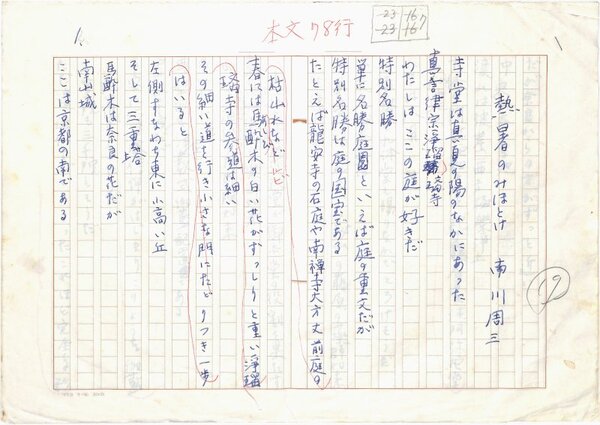 本文78行
1
熱暑のみほとけ　南川周三
19
寺堂は真夏の陽のなかにあった
真言律宗浄瑠璃寺
わたしはここの庭が好きだ
特別名勝
単に名勝庭園といえば庭の重文だが
特別名勝は庭の国宝である
たとえば龍安寺の石庭や南禅寺大方丈前庭の
枯山水など
春には馬酔木の白い花がずっしりと重い浄瑠
璃寺の参道は細い
その細い道を行き小さな門にたどりつき一歩
はいると
左側すなわち東に小高い丘
そして三重塔
馬酔木は奈良の花だが
南山城
ここは京都の南である